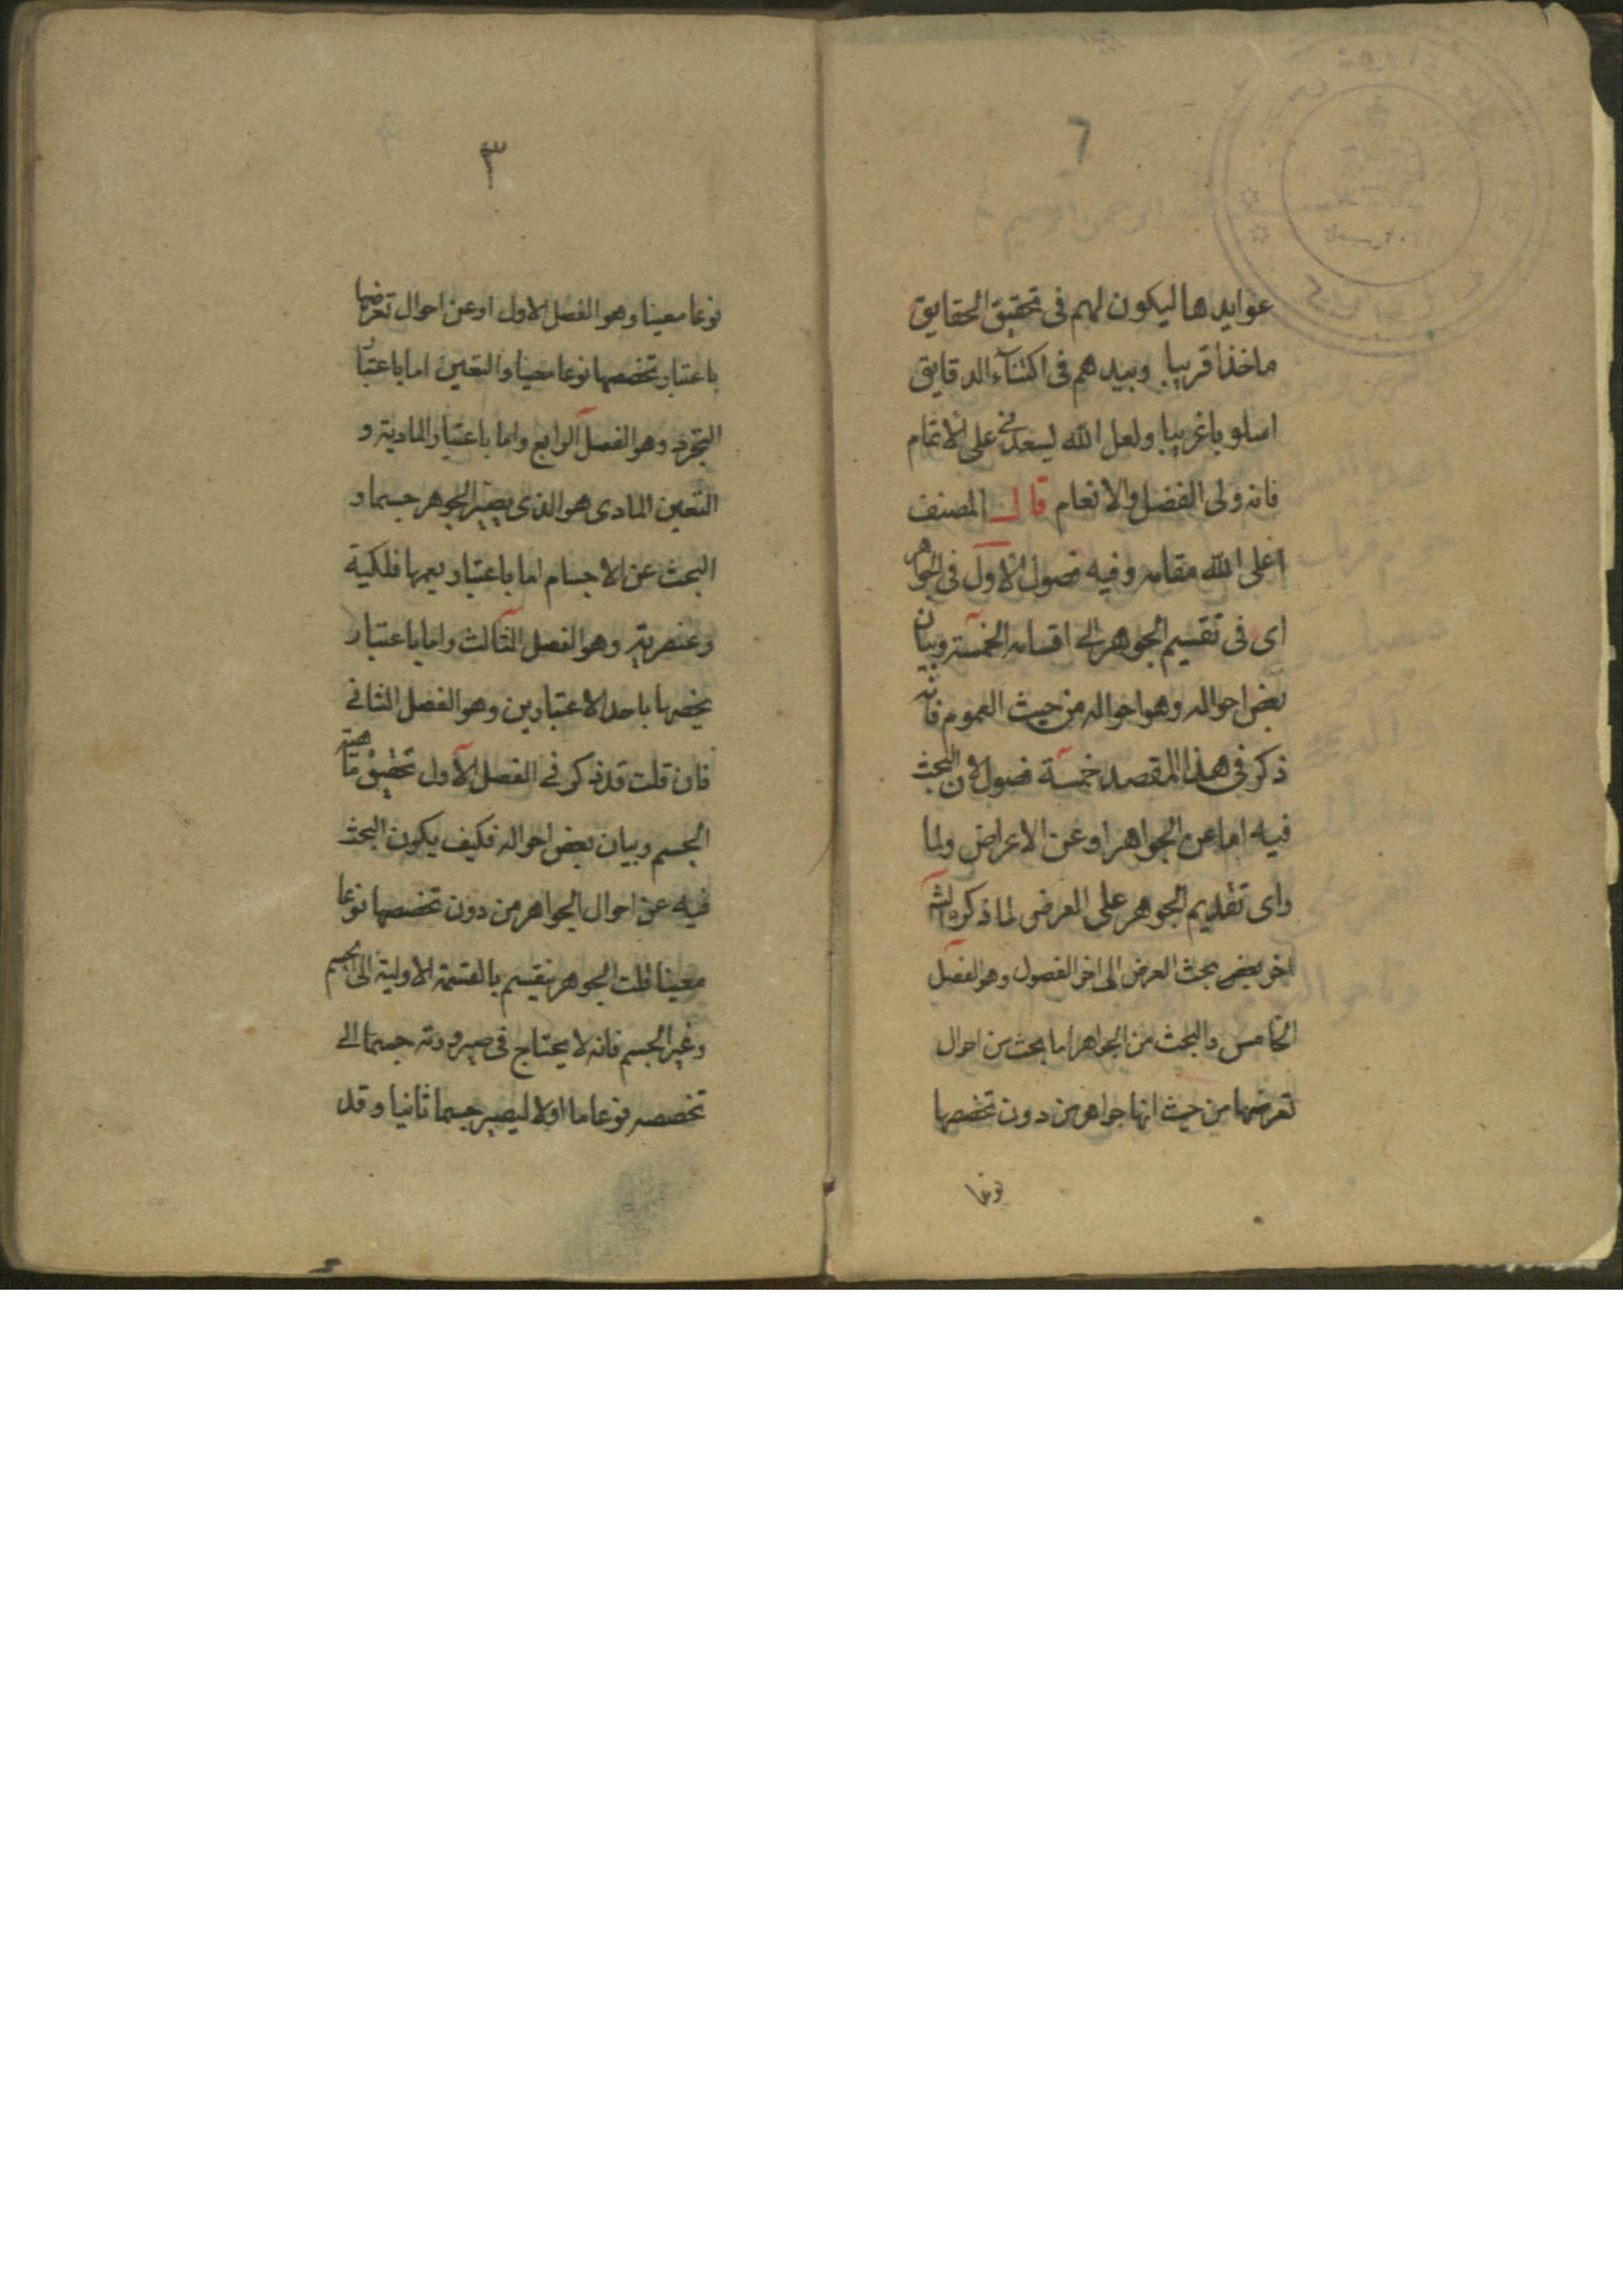 ٢
عوايدها ليكون لهم فى تحقيق الحقايق
ماخذا قريبا وبيدهم فى اكتناء الدقايق
اسلوبا غريبا ولعل الله يسعدنى على الاتمام
فانه ولى الفضل والانعام قال المصنف
اعلى الله مقامه وفيه فصول الاول فى الجواهر
اى فى تقسيم الجوهر الى اقسامه الخمسة وبيان
بعض احواله وهو احواله من حيث العموم فانه
ذكر فى هذا المقصد خمسة فصول لان البحث
فيه اما عن الجواهر او عن الاعراض ولما
راى تقديم الجوهر على العرض لما ذكره الش
اخر بعض بحث العرض الى اخر الفصول وهو الفصل
الخامس والبحث من الجواهر اما بحث من احوال
تعرضها من حيث انها جواهر من دون تخصصها
نوعا
٣
نوعا معينا وهو الفصل الاول او عن احوال تعرضها
باعتبار تخصصها نوعا معينا والتعين اما باعتبار
التجرد وهو الفصل الرابع واما باعتبار المادية و
التعين المادى هو الذى يصير الجوهر جسما و
البحث عن الاجسام اما باعتبار يعمها فلكية
وعنصرية وهو الفصل الثالث واما باعتبار
يخصها باحد الاعتبارين وهو الفصل الثانى
فان قلت قد ذكر فى الفصل الاول تحقيق ماهية
الجسم وبيان بعض احواله فكيف يكون البحث
فيه عن احوال الجواهر من دون تخصصها نوعا
معينا قلت الجوهر ينقسم بالقسمة الاولية الى الجسم
وغير الجسم فانه لا يحتاج فى صيرورته جسما الى
تخصصه نوعا ما اولا ليصير جسما ثانيا وقد